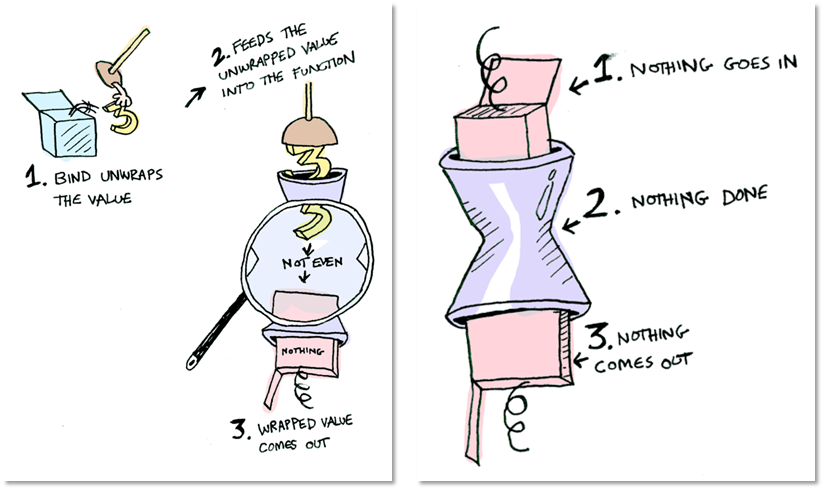 1. BIND UNWRAPS
THE VALUE
2. FEEDS THE
UNWRAPPED VALUE
INTO THE FUNCTION
3
3
NOT EVEN
NOTHING
3. WRAPPED VALUE
COMES OUT
1. NOTHING GOES IN
2. NOTHING DONE
3. NOTHING
COMES OUT